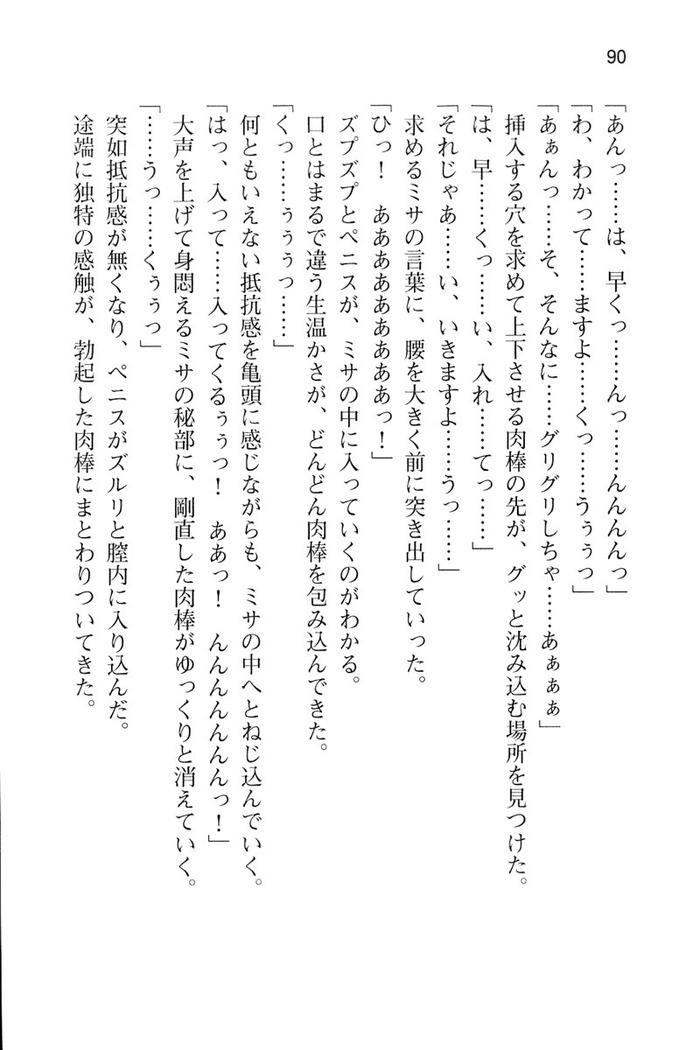 90
「あんっ……は、早くっ……んっ……んんんんっ」
「わ、わかって……ますよ……くっ……うぅぅっ」
「あぁんっ……そ、そんなに……グリグリしちゃ……あぁぁぁ」
挿入する穴を求めて上下させる肉棒の先が、グッと沈み込む場所を見つけた。
「は、早……くっ……い、入れ……てっ……」
「それじゃあ……い、いきますよ……うっ……」
求めるミサの言葉に、腰を大きく前に突き出していった。
「ひっ！　ああああああああっ！」
ズプズプとペニスが、ミサの中に入っていくのがわかる。
口とはまるで違う生温かさが、どんどん肉棒を包み込んできた。
「くっ……ぅぅぅっ……」
何ともいえない抵抗感を亀頭に感じながらも、ミサの中へとねじ込んでいく。
「はっ、入って……入ってくるぅぅっ！　ああっ！　んんんんんんっ！」
大声を上げて身悶えるミサの秘部に、剛直した肉棒がゆっくりと消えていく。
「……うっ……くぅぅっ」
突如抵抗感が無くなり、ペニスがズルリと膣内に入り込んだ。
途端に独特の感触が、勃起した肉棒にまとわりついてきた。